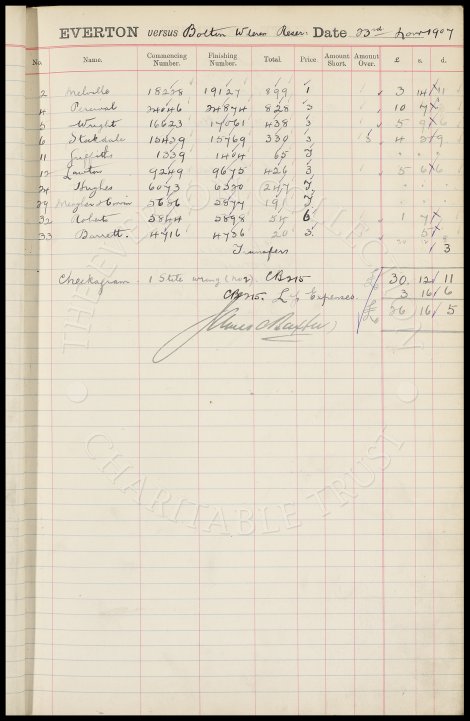 EVERTON versus Bolton W'ders Reser. Date 23rd Nov 1907
No. Name. Commencing Number. Finishing Number. Total. Price. Amount Short. Amount Over. £ s. d.
2 Melville 18228 19127 899 1 3 14 11
4 Percival 24046 24874 828 3 10 7
5 Wright 16623 17061 438 3 5 9 6
6 Stockdale 15439 15769 330 3 4 2 9
11 Griffiths 1339 1404 65 3
12 Lawton 9249 9675 426 3 5 6 6
24 Hughes 6073 6320 247 3
29 5686 5877 191 3
32 5844 5898 54 6 1 7
33 Barrett. 4716 4736 20 3 5
Transfers 3
Checkagram 1 State wrong (No 2) CB 215 £ 30 12 11
CB 215. L/ Expenses. 3 16 6
£ 26 16 5
James Baxter
THE EVERTON COLLECTION
CHARITABLE TRUST